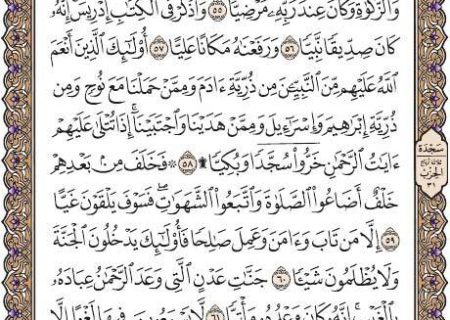 وَٱلزَّكَوٰةِ وَكَانَ عِندَ رَبِّهِۦ مَرْضِيًّا ٥٥ وَٱذْكُرْ فِى ٱلْكِتَٰبِ إِدْرِيسَ إِنَّهُۥ
كَانَ صِدِّيقًا نَّبِيًّا ٥٦ وَرَفَعْنَٰهُ مَكَانًا عَلِيًّا ٥٧ أُو۟لَٰٓئِكَ ٱلَّذِينَ أَنْعَمَ
ٱللَّهُ عَلَيْهِم مِّنَ ٱلنَّبِيِّـۧنَ مِن ذُرِّيَّةِ ءَادَمَ وَمِمَّنْ حَمَلْنَا مَعَ نُوحٍ وَمِن
ذُرِّيَّةِ إِبْرَٰهِيمَ وَإِسْرَٰٓءِيلَ وَمِمَّنْ هَدَيْنَا وَٱجْتَبَيْنَآ ۚ إِذَا تُتْلَىٰ عَلَيْهِمْ
ءَايَٰتُ ٱلرَّحْمَٰنِ خَرُّوا۟ سُجَّدًا وَبُكِيًّا ۩ ٥٨ ۞ فَخَلَفَ مِنۢ بَعْدِهِمْ
خَلْفٌ أَضَاعُوا۟ ٱلصَّلَوٰةَ وَٱتَّبَعُوا۟ ٱلشَّهَوَٰتِ ۖ فَسَوْفَ يَلْقَوْنَ غَيًّا
٥٩ إِلَّا مَن تَابَ وَءَامَنَ وَعَمِلَ صَٰلِحًا فَأُو۟لَٰٓئِكَ يَدْخُلُونَ ٱلْجَنَّةَ
وَلَا يُظْلَمُونَ شَيْـًٔا ٦٠ جَنَّٰتِ عَدْنٍ ٱلَّتِى وَعَدَ ٱلرَّحْمَٰنُ عِبَادَهُۥ
بِٱلْغَيْبِ ۚ إِنَّهُۥ كَانَ وَعْدُهُۥ مَأْتِيًّا ٦١ لَّا يَسْمَعُونَ فِيهَا لَغْوًا إِلَّا
سَجْدَة
الحِزْب
٣١